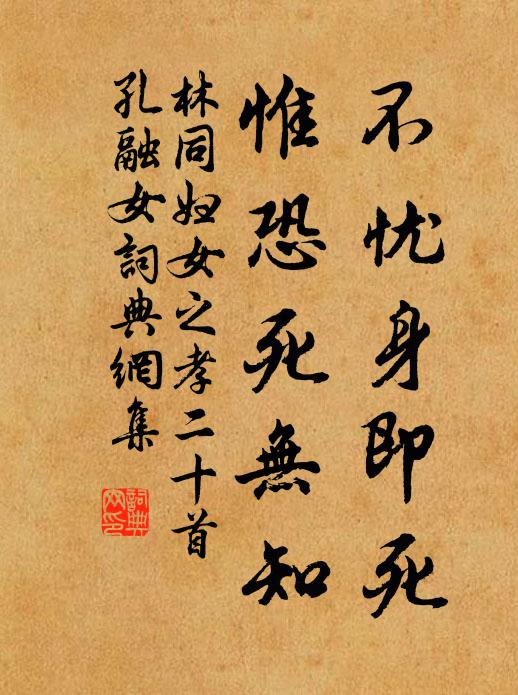 不忧身即死
惟恐死無知
林同妇女之孝二十首
孔融女詞典網集
詞典网印